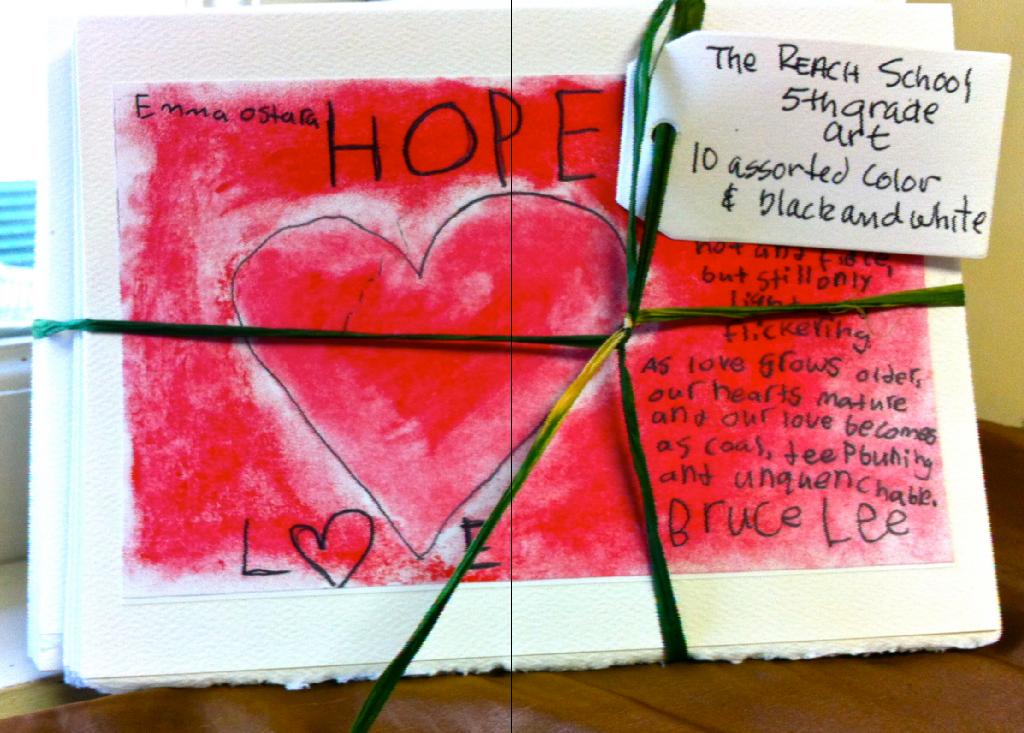 Emma Ostara
HOPE
The REACH School
5th grade
art
10 assorted color
& black and white
hot and fierce,
but still only
light
flickering
As love grows older,
our hearts mature
and our love becomes
as coal, deep buning
and unquenchable.
Bruce Lee
L♡ E